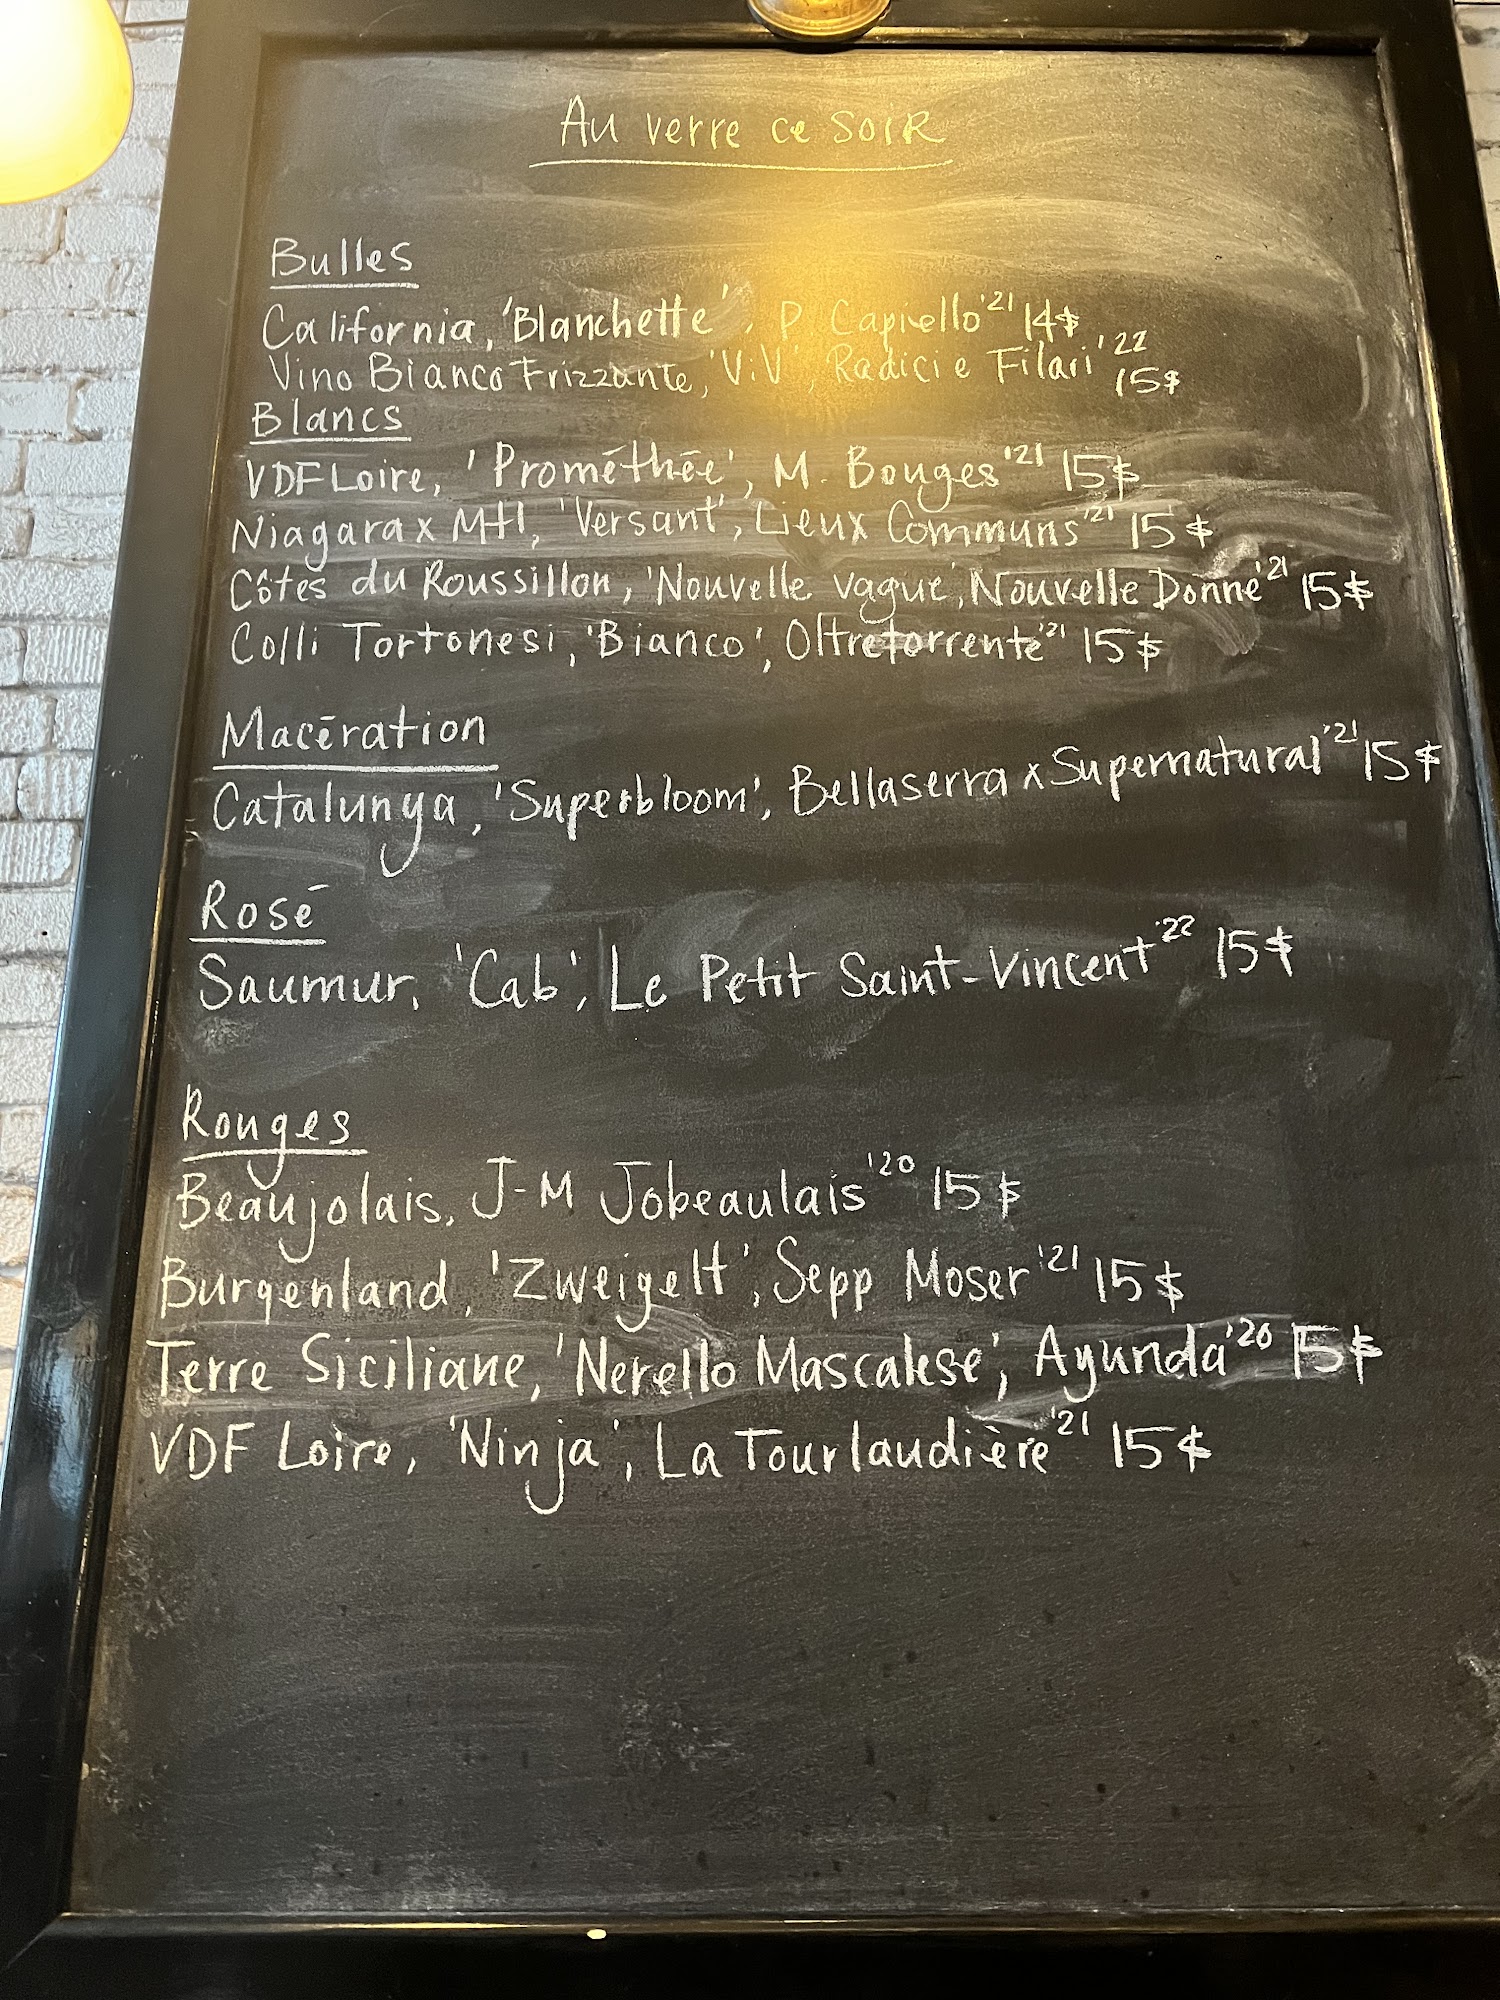 Au verre ce soir
Bulles
California, 'Blanchette', P. Capiello '21 14$
Vino Bianco Frizzante, 'ViV', Radici e Filari '22 15$
Blancs
VDF Loire, 'Prométhée', M. Bouges '21 15$
Niagara x Mtl, 'Versant', Lieux Communs '21 15$
Côtes du Roussillon, 'Nouvelle vague', Nouvelle Donne '21 15$
Colli Tortonesi, 'Bianco', Oltretorrente '21 15$
Macération
Catalunya, 'Superbloom', Bellaserra x Supernatural '21 15$
Rosé
Saumur, 'Cab', Le Petit Saint-Vincent '22 15$
Rouges
Beaujolais, J-M Jobeaulais '20 15$
Burgenland, 'Zweigelt', Sepp Moser '21 15$
Terre Siciliane, 'Nerello Mascalese', Ayunda '20 15$
VDF Loire, 'Ninja', La Tourlaudière '21 15$